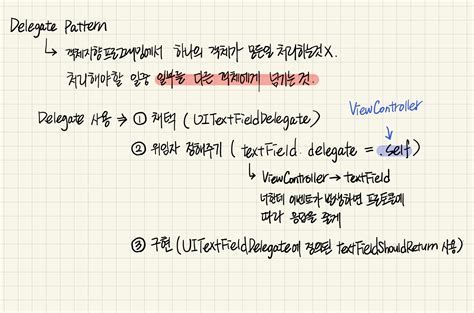 Delegate Pattern
↳ 객체지향 프로그래밍에서 하나의 객체가 모든일 처리하는것 X.
처리해야할 일 중 일부를 다른 객체에게 넘기는 것.
ViewController
Delegate 사용 → ① 채택 (UITextFieldDelegate)
② 위임자 정해주기 (textField.delegate = .self)
↳ ViewController → textField
너한테 이벤트가 발생하면 프로토콜에
따라 응답을 줄게
③ 구현 (UITextFieldDelegate에 정의된 textFieldShouldReturn 사용)